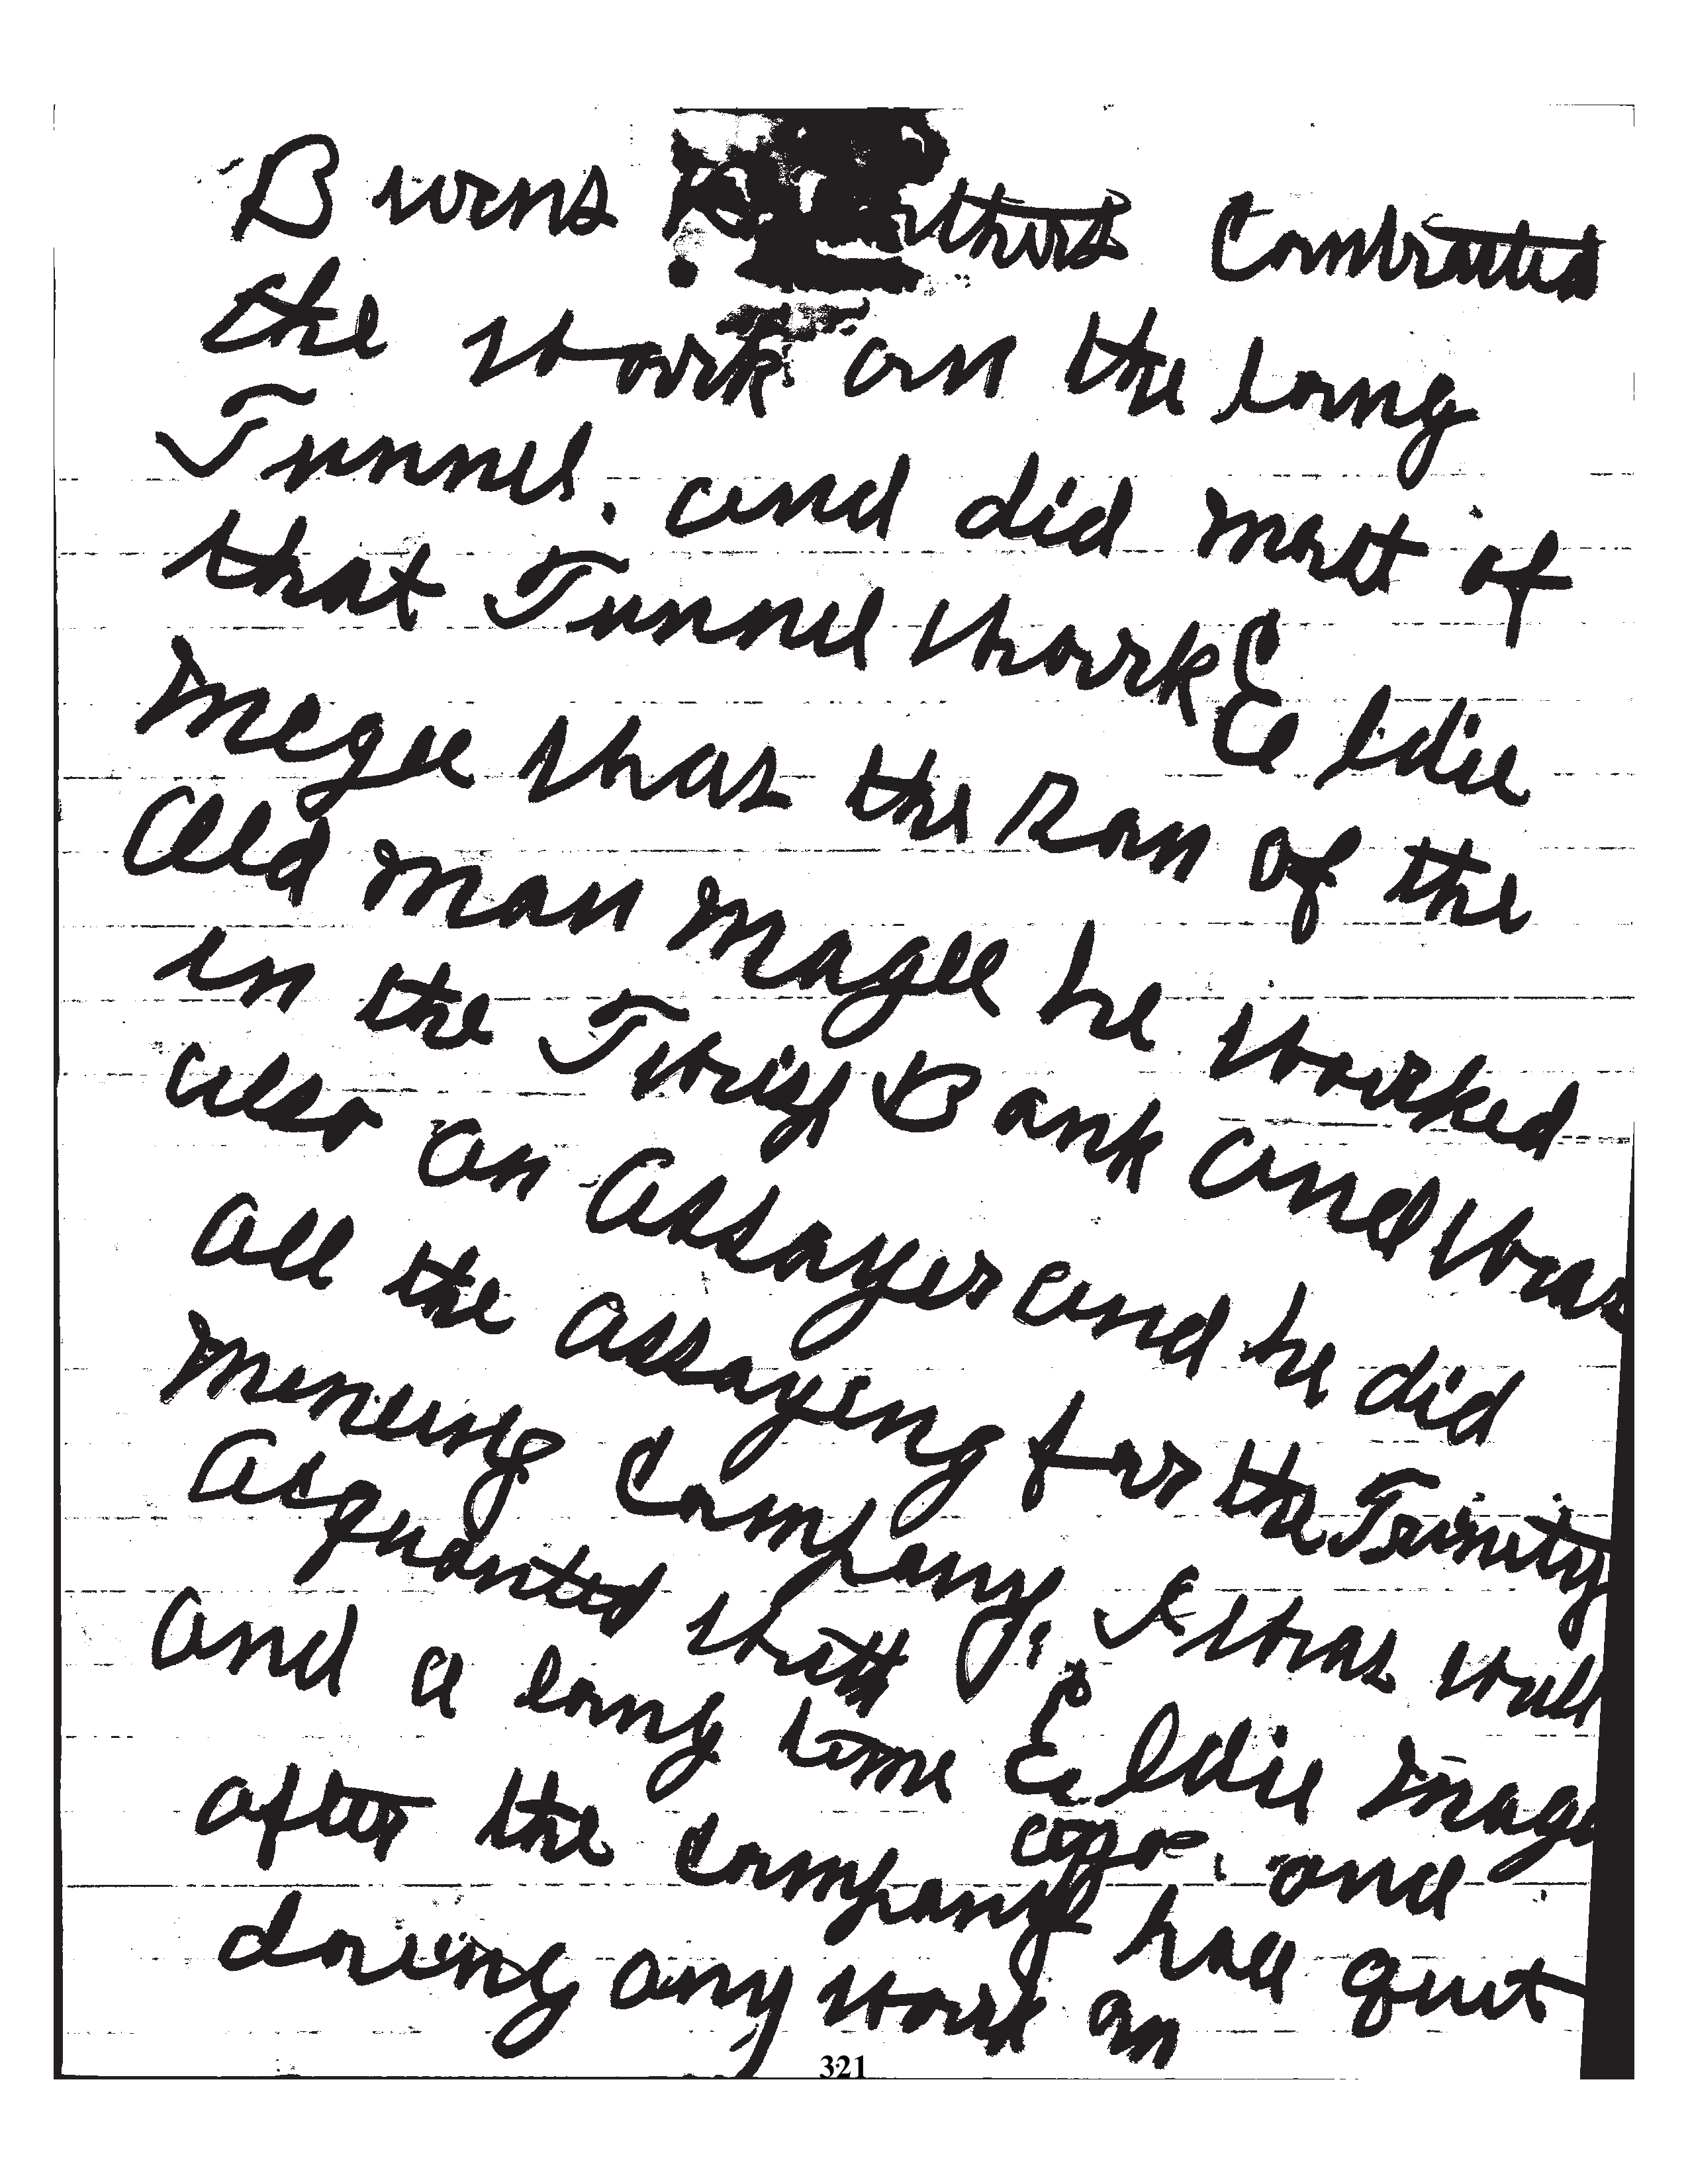 Burns Brothers Contracted
the work on the long
Tunnel. and did most of
that Tunnel work Eddie
Megee was the Son of the
Old man Magee he worked
in the Bank and was
also an Assayer and he did
all the assaying for the Trinity
Mineing Company, I was well
Acquanted with Eddie Mage
and a long time ago. and
after the company had quit
doring any work on
321